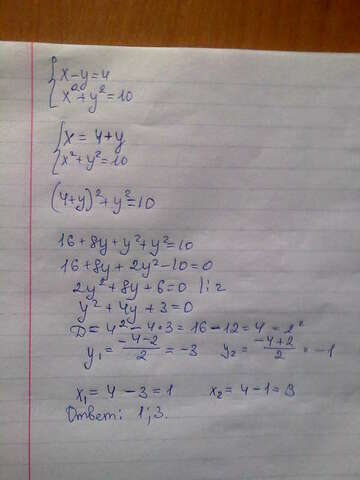 { x-y=4
{ x²+y²=10
{ x=4+y
{ x²+y²=10
(4+y)²+y²=10
16+8y+y²+y²=10
16+8y+2y²-10=0
2y²+8y+6=0 |:2
y²+4y+3=0
D=4²-4·3=16-12=4=2²
y₁=(-4-2)/2=-3 y₂=(-4+2)/2=-1
x₁=4-3=1 x₂=4-1=3
Ответ: 1;3.